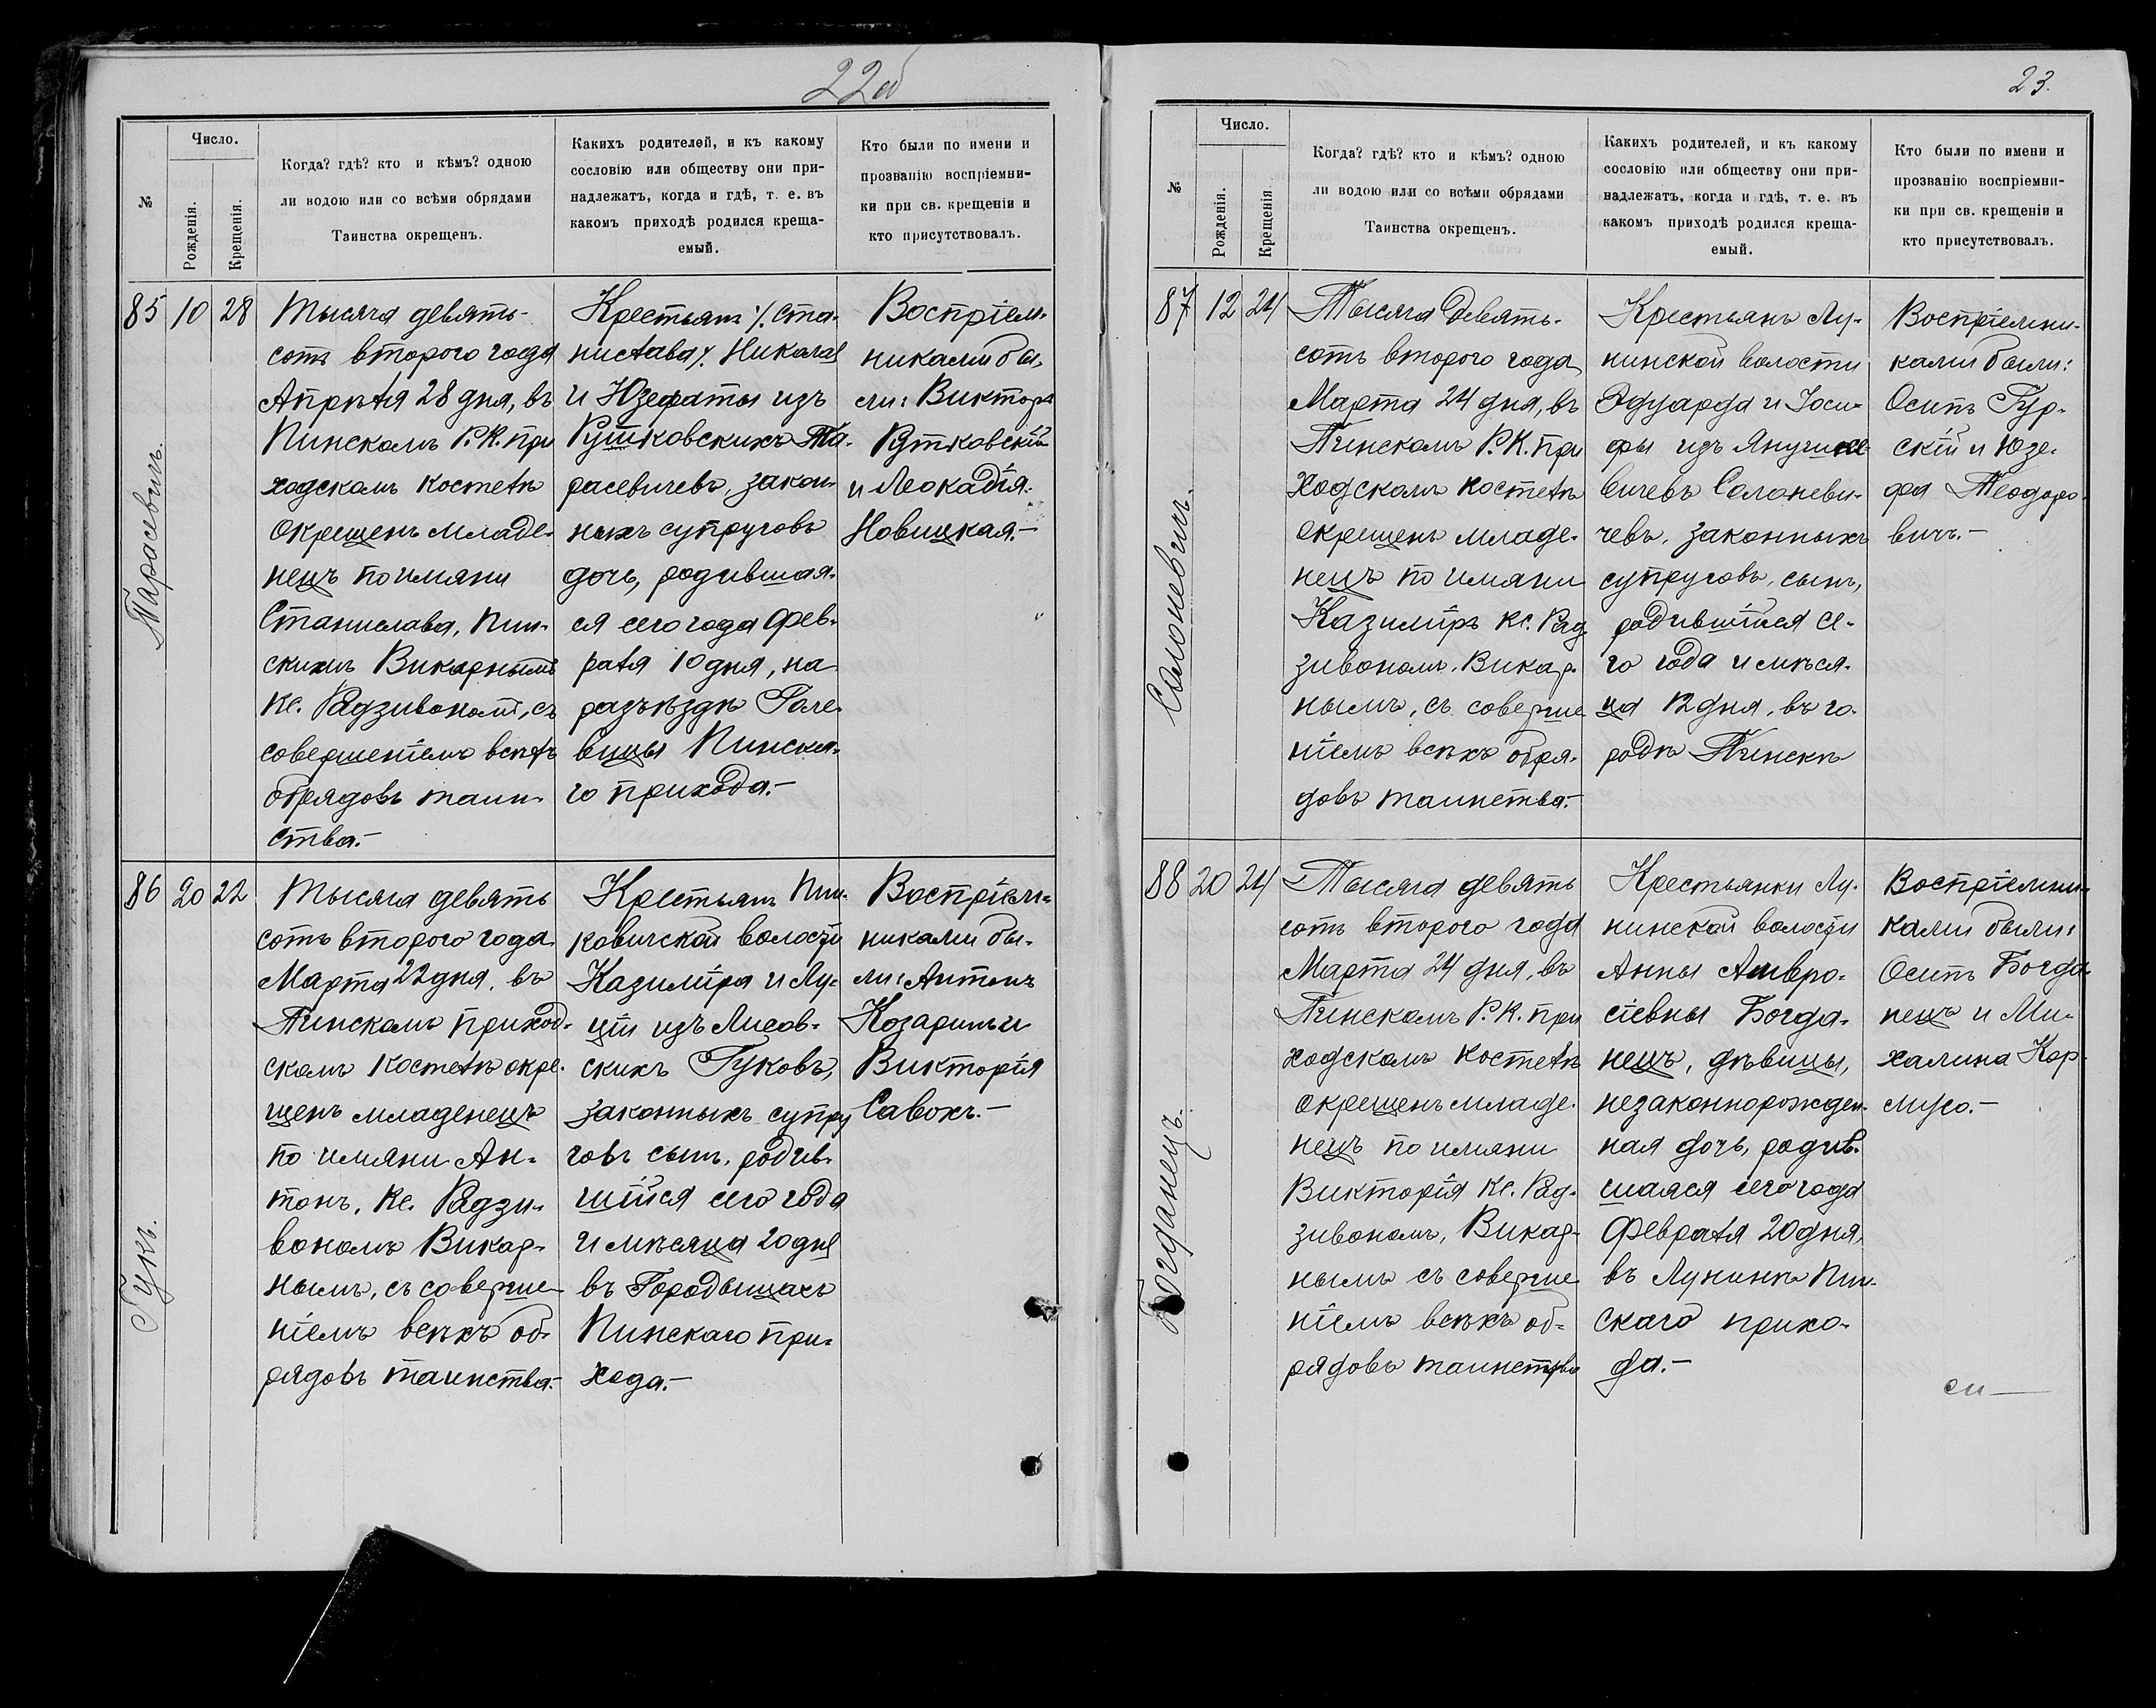 22об
№
Число.
Рожденія.
Крещенія.
Когда? гдѣ? кто и кѣмъ? одною
ли водою или со всѣми обрядами
Таинства окрещенъ.
Какихъ родителей, и къ какому
сословію или обществу они при-
надлежатъ, когда и гдѣ, т. е. въ
какомъ приходѣ родился креща-
емый.
Кто были по имени и
прозванію воспріемни-
ки при св. крещеніи и
кто присутствовалъ.
85
10
28
Тарасевичъ.
Тысяча девять-
сотъ второго года
Апрѣля 28 дня, въ
Пинскомъ Р. К. при
ходскомъ костелѣ
окрещенъ младе-
нецъ по имяни
Станислава, Пин-
скимъ Викарнымъ
Кс. Радзивономъ, съ
совершеніемъ всѣхъ
обрядовъ таин-
ства.-
Крестьянъ ./. Ста-
нислава ./. Николая
и Юзефаты изъ
Рутковскихъ Та-
расевичевъ, закон-
ныхъ супруговъ
дочь, родившая-
ся сего года Фев-
раля 10 дня, на
разъѣздѣ Голе-
вицы Пинска-
го прихода.-
Воспріем-
никами бы-
ли: Викторъ
Рутковскій
и Леокадія
Новицкая.-
86
20
22
Гукъ.
Тысяча девять
сотъ второго года
Марта 22 дня, въ
Пинскомъ приход-
скомъ костелѣ окре-
щенъ младенецъ
по имяни Ан-
тонъ, Кс. Радзи-
вономъ Викар-
нымъ, съ соверше-
ніемъ всѣхъ об-
рядовъ таинства.-
Крестьянъ Пин-
ковичской волости
Казимира и Лу-
ціи изъ Лисов-
скихъ Гуковъ,
законныхъ супру
говъ сынъ, родив-
шійся сего года
и мѣсяца 20 дня
въ Городыщахъ
Пинскаго при-
хода.-
Воспріем-
никами бы-
ли: Антонъ
Козаринъ и
Викторія
Савохъ.-
23.
№
Число.
Рожденія.
Крещенія
Когда? гдѣ? кто и кѣмъ? одною
ли водою или со всѣми обрядами
Таинства окрещенъ.
Какихъ родителей, и къ какому
сословію или обществу они при-
надлежатъ, когда и гдѣ, т. е. въ
какомъ приходѣ родился креща-
емый.
Кто были по имени и
прозванію воспріемни-
ки при св. крещеніи и
кто присутствовалъ.
87
12
24
Солоневичъ.
Тысяча девять-
сотъ второго года
Марта 24 дня, въ
Пинскомъ Р. К. при
ходскомъ костелѣ
окрещенъ младе-
нецъ по имяни
Казиміръ Кс. Рад
зивономъ. Викар-
нымъ, съ соверше
ніемъ всѣхъ обря-
довъ таинства.-
Крестьянъ Лу-
нинской волости
Эдуарда и Іоси-
фы изъ Янушке
вичевъ Солоневи-
чевъ, законныхъ
супруговъ, сынъ,
родившійся се-
го года и мѣся-
ца 12 дня, въ го-
родѣ Пинскѣ
Воспріемни-
ками были:
Осипъ Гур-
скій и Юзе-
фа Теодоро-
вичъ.-
88
20
24
Богданецъ.
Тысяча девять
сотъ второго года
Марта 24 дня, въ
Пинскомъ Р. К. при
ходскомъ костелѣ
окрещенъ младе-
нецъ по имяни
Викторія Кс. Рад-
зивономъ, Викар-
нымъ съ соверше
ніемъ всѣхъ об-
рядовъ таинства
Крестьянки Лу-
нинской волости
Анны Амвро-
сіевны Богда-
нецъ, дѣвицы,
незаконнорожден-
ная дочь, родив-
шаяся сего года
Февраля 20 дня,
въ Лунинѣ Пин-
скаго прихо-
да.-
Воспріемни-
ками были:
Осипъ Богда-
нецъ и Ми-
халина Кар-